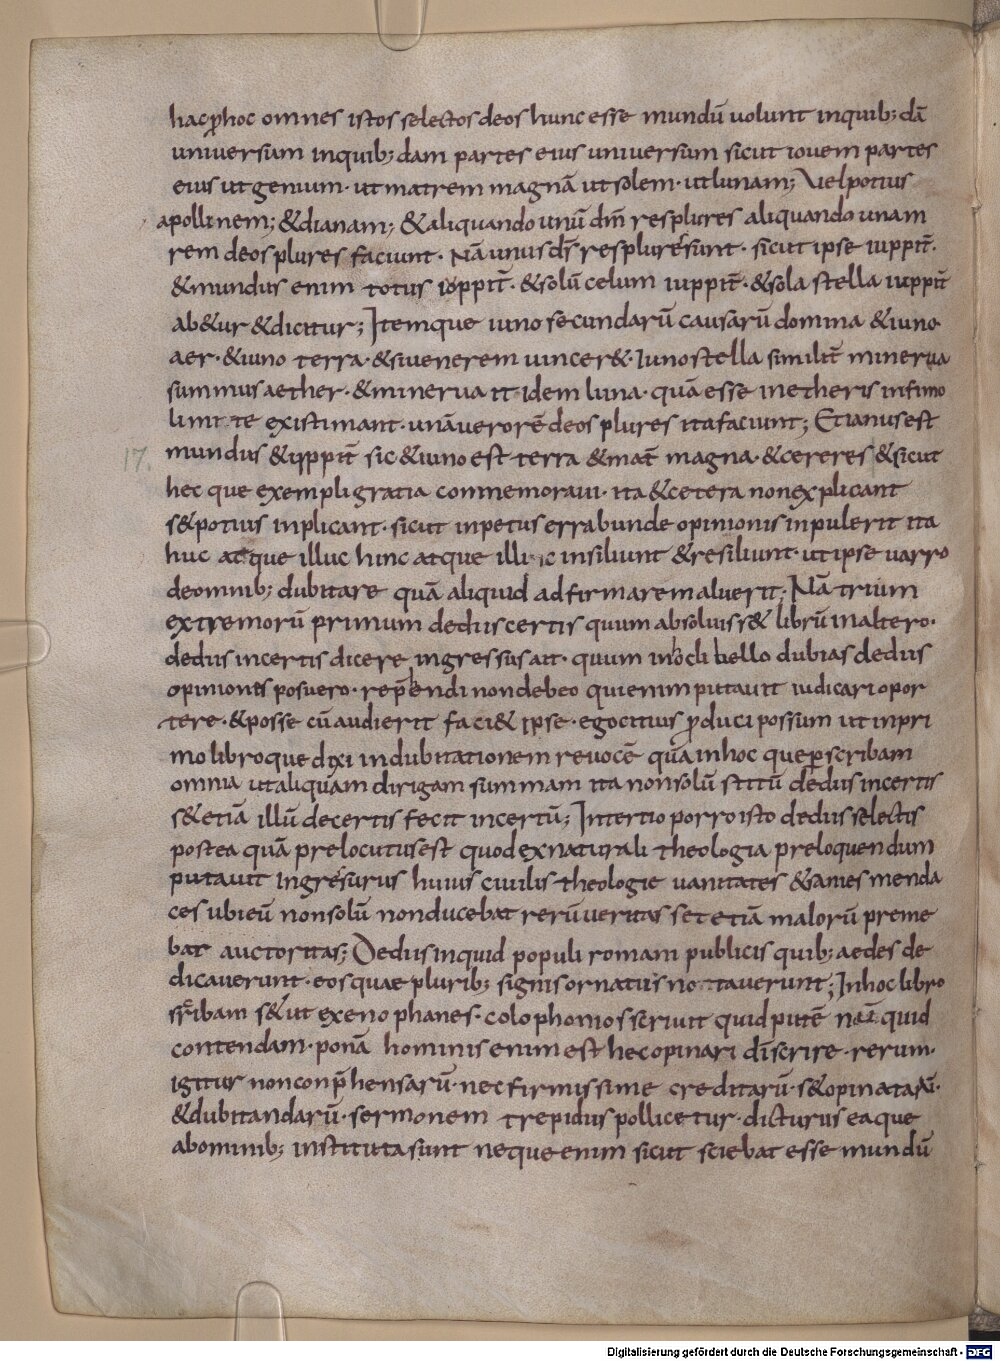 hac ꝓhoc omnes istos selectos deos hunc esse mundū uolunt inquib; dā
uniuersum inquib; dam partes eius uniuersum sicut iouem partes
eius ut genium · ut matrem magnā ut solem · ut lunam; Vel potius
apollinem; & dianam; & aliquando unū dm̄ res plures aliquando unam
rem deos plures faciunt · Nā unus ds̄ res plures sunt · sicut ipse iuppit̄ ·
& mundus enim totus iuppit̄ · & solū celum iuppit̄ · & sola stella iuppit̄
ab&ur & dicitur; Itemque iuno secundarū causarū domina & iuno
aer · & iuno terra · & si uenerem uincer& · Iuno stella similit̄ minerua
summus aether · & minerua it idem luna · quā esse in etheris infimo
limite existimant · unā uero rē deos plures ita faciunt; Et ianus est
17. mundus & iuppit̄ sic & iuno est terra & mat̄ magna · & cereres & sicut
hec que exempli gratia conmemoraui · ita & cetera non explicant
s& potius inplicant · sicut inpetus errabunde opinionis inpulerit ita
huc atque illuc hinc atque illinc insiliunt & resiliunt · ut ipse uarro
de omnib; dubitare quā aliquid adfirmare maluerit; Nā trium
extremorū primum de diis certis quum absoluiss& librū in altero ·
de diis incertis dicere ingressus ait · quum in hoc libello dubias de diis
opiniones posuero · rep̄hendi non debeo qui enim putauit iudicari opor
tere · & posse cū audierit faci& ipse · ego citius ꝓduci possum ut in pri
mo libro que dixi in dubitationem reuocē quā in hoc que perscribam
omnia ut aliquam dirigam summam ita non solū istū de diis incertis
s& etiā illū de certis fecit incertū; In tertio porro isto de diis selectis
postea quā prelocutus est quod ex naturali theologia preloquendum
putauit ingresurus huius ciuilis theologie uanitates & sanies menda
ces ubi eū non solū non ducebat rerū ueritas set etiā malorū preme
bat auctoritas; De diis inquid populi romani publicis quib; aedes de
dicauerunt · eos quae plurib; signis ornatus notauerunt; In hoc libro
scribam s& ut exenophanes · colophonios scriuit quid putē non quid
contendam · ponā hominis enim est hec opinari dī scrire · rerum ·
igitur non conp̄hensarū · nec firmissime creditarū · s& opinatarū ·
& dubitandarū · sermonem trepidus pollicetur · dicturus ea que
abominib; instituta sunt neque enim sicut sciebat esse mundū
Digitalisierung gefördert durch die Deutsche Forschungsgemeinschaft - DFG